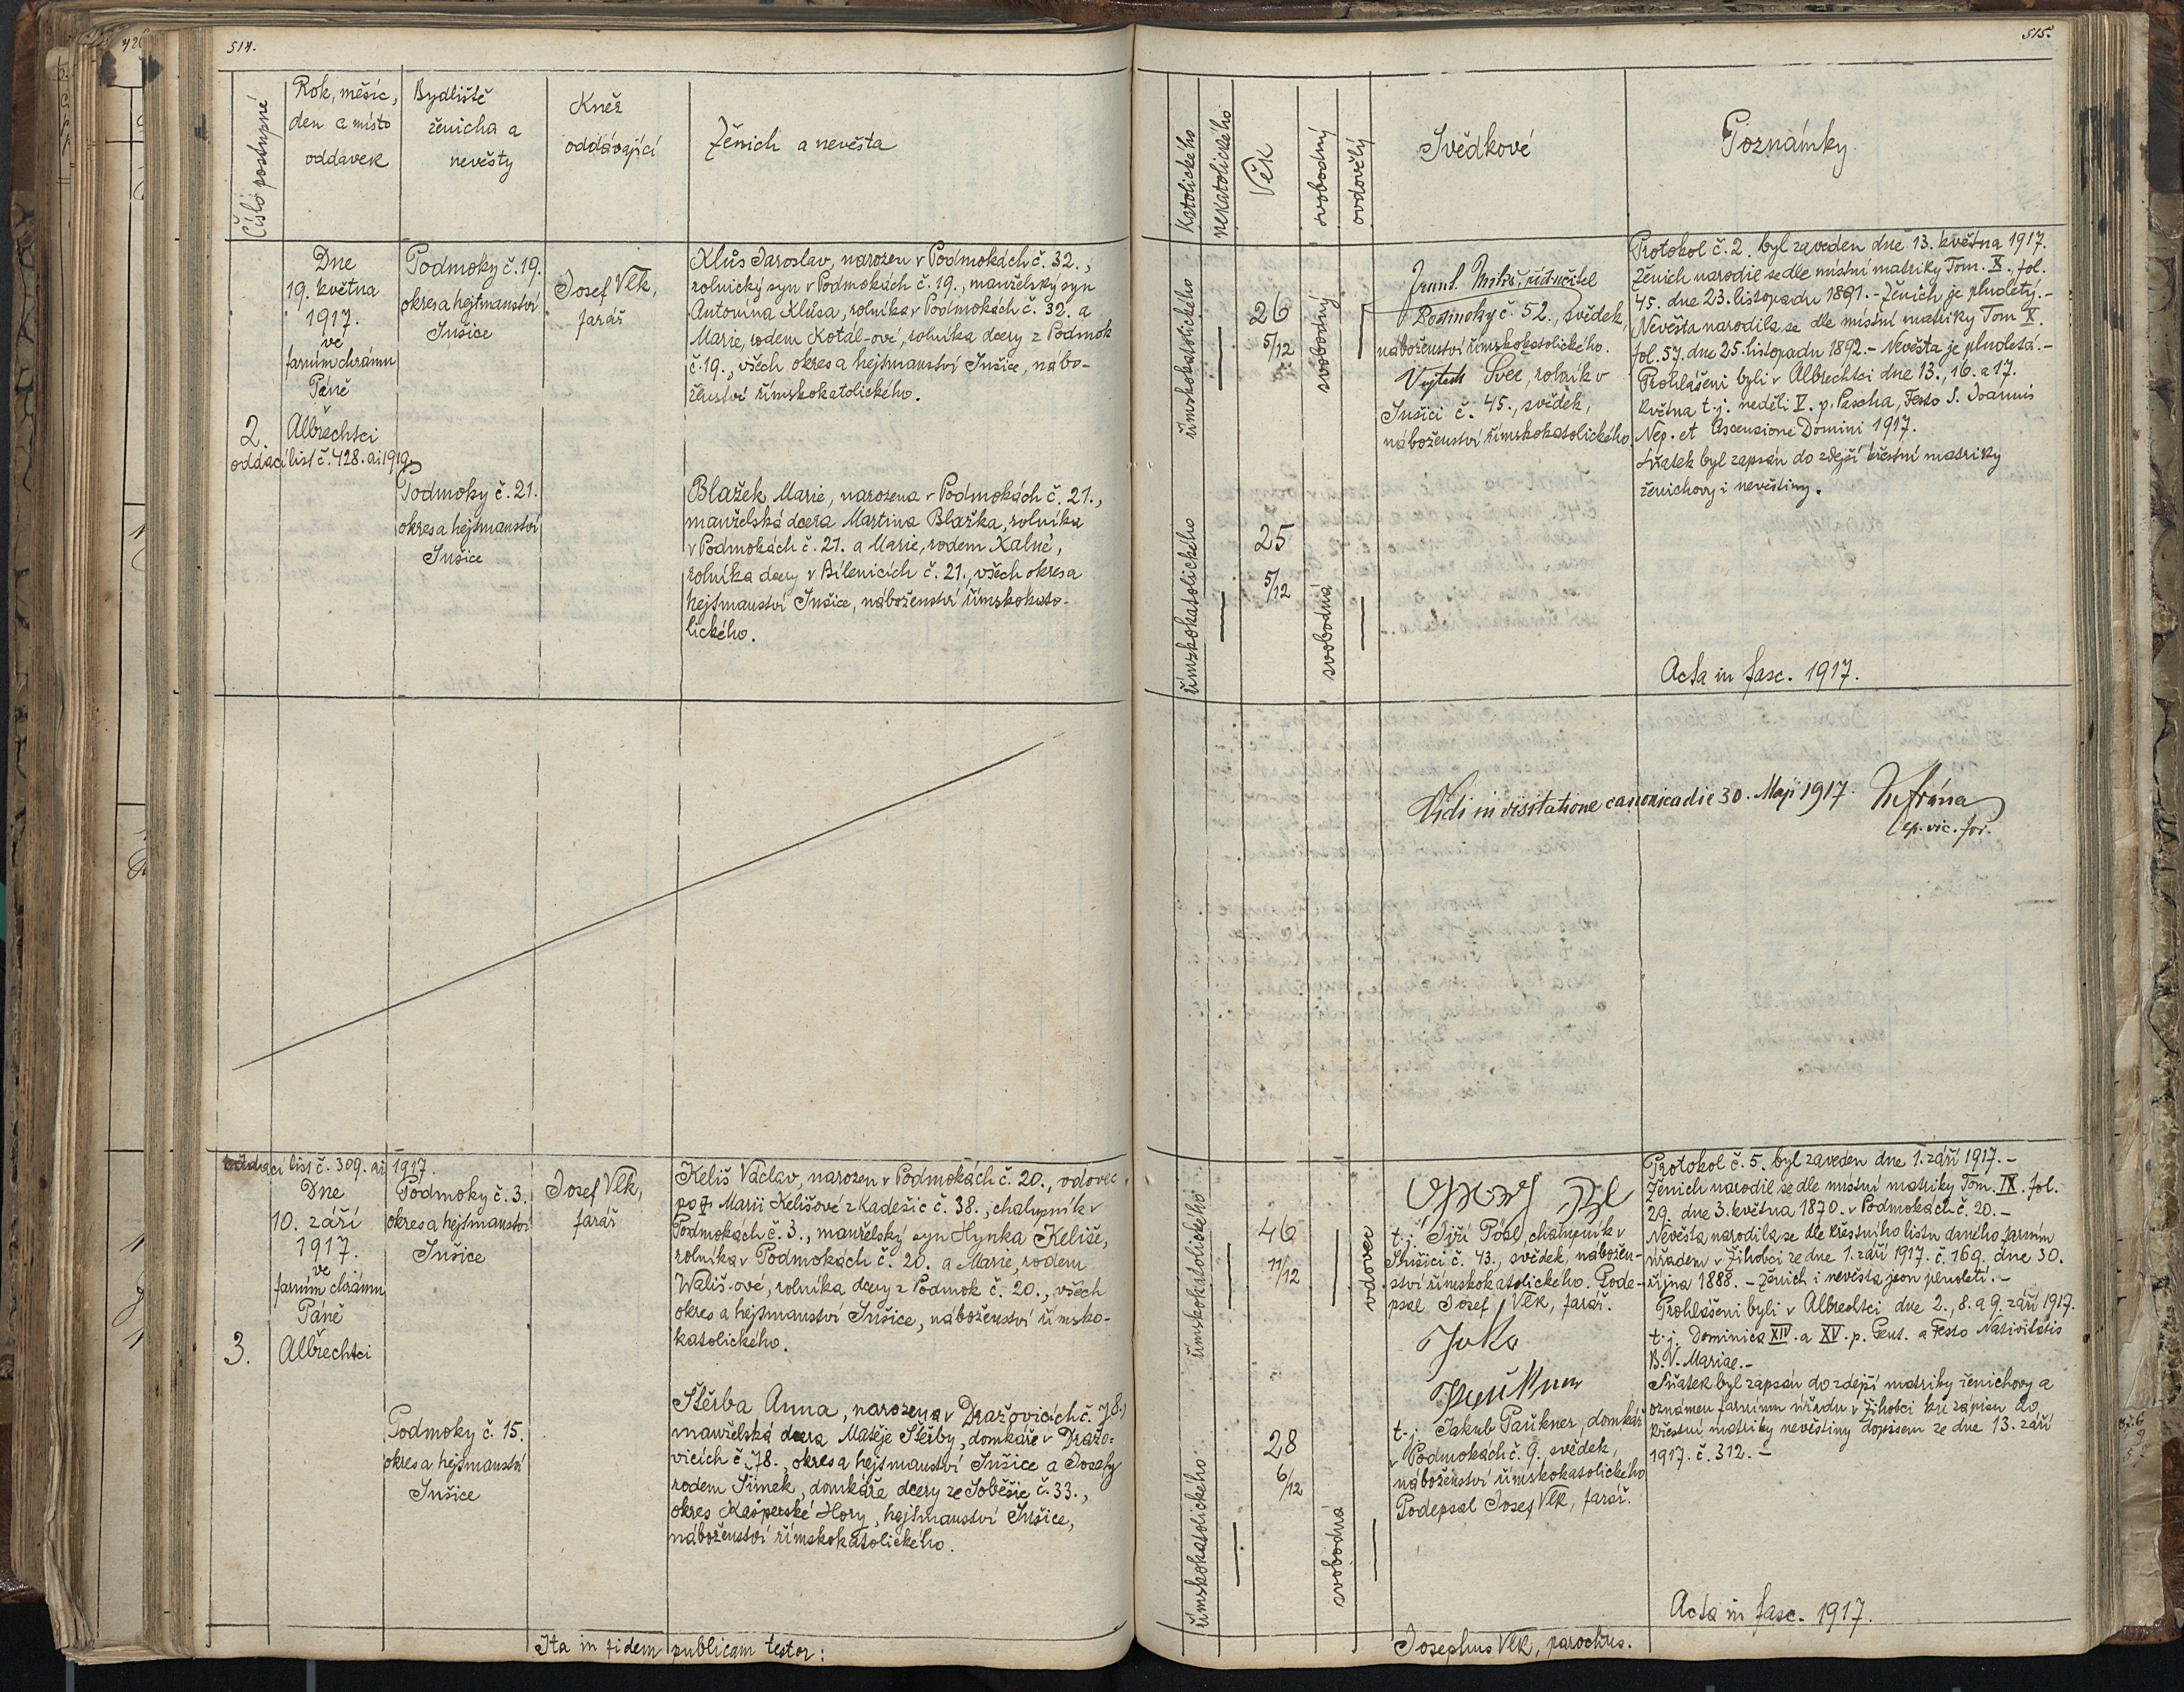 514.
Číslo postupné
Rok, měsíc,
den a místo
oddavek
Bydliště
ženicha a
nevěsty
Kněz
oddávající
Ženich a nevěsta
Dne
19. května
1917.
ve
farním chrámu
Páně
Albrechtci
2.
oddací list č. 428. ai 1919.
Podmoky č. 19.
okres a hejtmanství
Sušice
Josef Vlk,
farář
Klůs Jaroslav, narozen v Podmokách č. 32.,
rolnický syn v Podmokách č. 19., manželský syn
Antonína Klůsa, rolníka v Podmokách č. 32. a
Marie, rodem Kotál-ové, rolníka dcery z Podmok
č. 19., všech okres a hejtmanství Sušice, nábo-
ženství římskokatolického.
Podmoky č. 21.
okres a hejtmanství
Sušice
Blažek Marie, narozena v Podmokách č. 21.,
manželská dcera Martina Blažka, rolníka
v Podmokách č. 21. a Marie, rodem Kalné,
rolníka dcery v Bílenicích č. 21., všech okres a
hejtmanství Sušice, náboženství římskokato-
lického.
oddací list č. 309. ai 1917.
Dne
10. září
1917.
ve
farním chrámu
Páně
Albrechtci
3.
Podmoky č. 3.
okres a hejtmanství
Sušice
Josef Vlk,
farář
Keliš Václav, narozen v Podmokách č. 20., vdovec
po Marii Kelišové z Kadešic č. 38., chalupník v
Podmokách č. 3., manželský syn Hynka Keliše,
rolníka v Podmokách č. 20. a Marie, rodem
Wališ-ové, rolníka dcery z Podmok č. 20., všech
okres a hejtmanství Sušice, náboženství římsko-
katolického.
Podmoky č. 15.
okres a hejtmanství
Sušice
Štěrba Anna, narozena v Dražovicích č. 78.,
manželská dcera Matěje Štěrby, domkáře v Dražo-
vicích č. 78., okres a hejtmanství Sušice a Josefy
rodem Šimek, domkáře dcery ze Soběšic č. 33.,
okres Kašperské Hory, hejtmanství Sušice,
náboženství římskokatolického.
Ita in fidem publicam testor:
515.
Katolického
nekatolického
Věk
svobodný
ovdovělý
Svědkové
Poznámky
římskokatolického
26
5/12
svobodný
Podmoky č. 52., svědek,
náboženství římskokatolického.
Vojtěch Švec, rolník v
Sušici č. 45., svědek,
náboženství římskokatolického
Protokol č. 2. byl zaveden dne 13. května 1917.
Ženich narodil se dle místní matriky Tom. X., fol.
45. dne 23. listopadu 1891. - Ženich je plnoletý. -
Nevěsta narodila se dle místní matriky Tom X.
fol. 57. dne 25. listopadu 1892. - Nevěsta je plnoletá. -
Prohlášeni byli v Albrechtci dne 13., 16. a 17.
května t.j. neděli V. p. Pascha, Festo S. Joannis
Nep. et Ascensione Domini 1917.
Sňatek byl zapsán do zdejší křestní matriky
ženichovy i nevěstiny.
římskokatolického
25
5/12
svobodná
Acta in fasc. 1917.
Vidi in visitatione canonica die 30. Maji 1917.
ep. vic. for.
římskokatolického
46
11/12
vdovec
t.j. Jiří Pösl, chalupník v
Sušici č. 43., svědek, nábožen-
ství římskokatolického. Pode-
psal Josef Vlk, farář.
t.j. Jakub Paukner, domkář
v Podmokách č. 9. svědek,
náboženství římskokatolického
Podepsal Josef Vlk, farář.
Protokol č. 5. byl zaveden dne 1. září 1917. -
Ženich narodil se dle místní matriky Tom. IX. fol.
29. dne 3. května 1870. v Podmokách č. 20. -
Nevěsta narodila se dle křestního listu daného farním
úřadem v Žihobci ze dne 1. září 1917. č. 169. dne 30.
října 1888. - Ženich i nevěsta jsou plnoletí. -
Prohlášeni byli v Albrechtci dne 2., 8. a 9. září 1917.
t.j. Dominica XIV. a XV. p. Pent. a Festo Nativitatis
B. V. Mariae. -
Sňatek byl zapsán do zdejší matriky ženichovy a
oznámen farnímu úřadu v Žihobci ku zápisu do
křestní matriky nevěstiny dopisem ze dne 13. září
1917. č. 312. -
římskokatolického
28
6/12
svobodná
Acta in fasc. 1917.
Josephus Vlk, parochus.